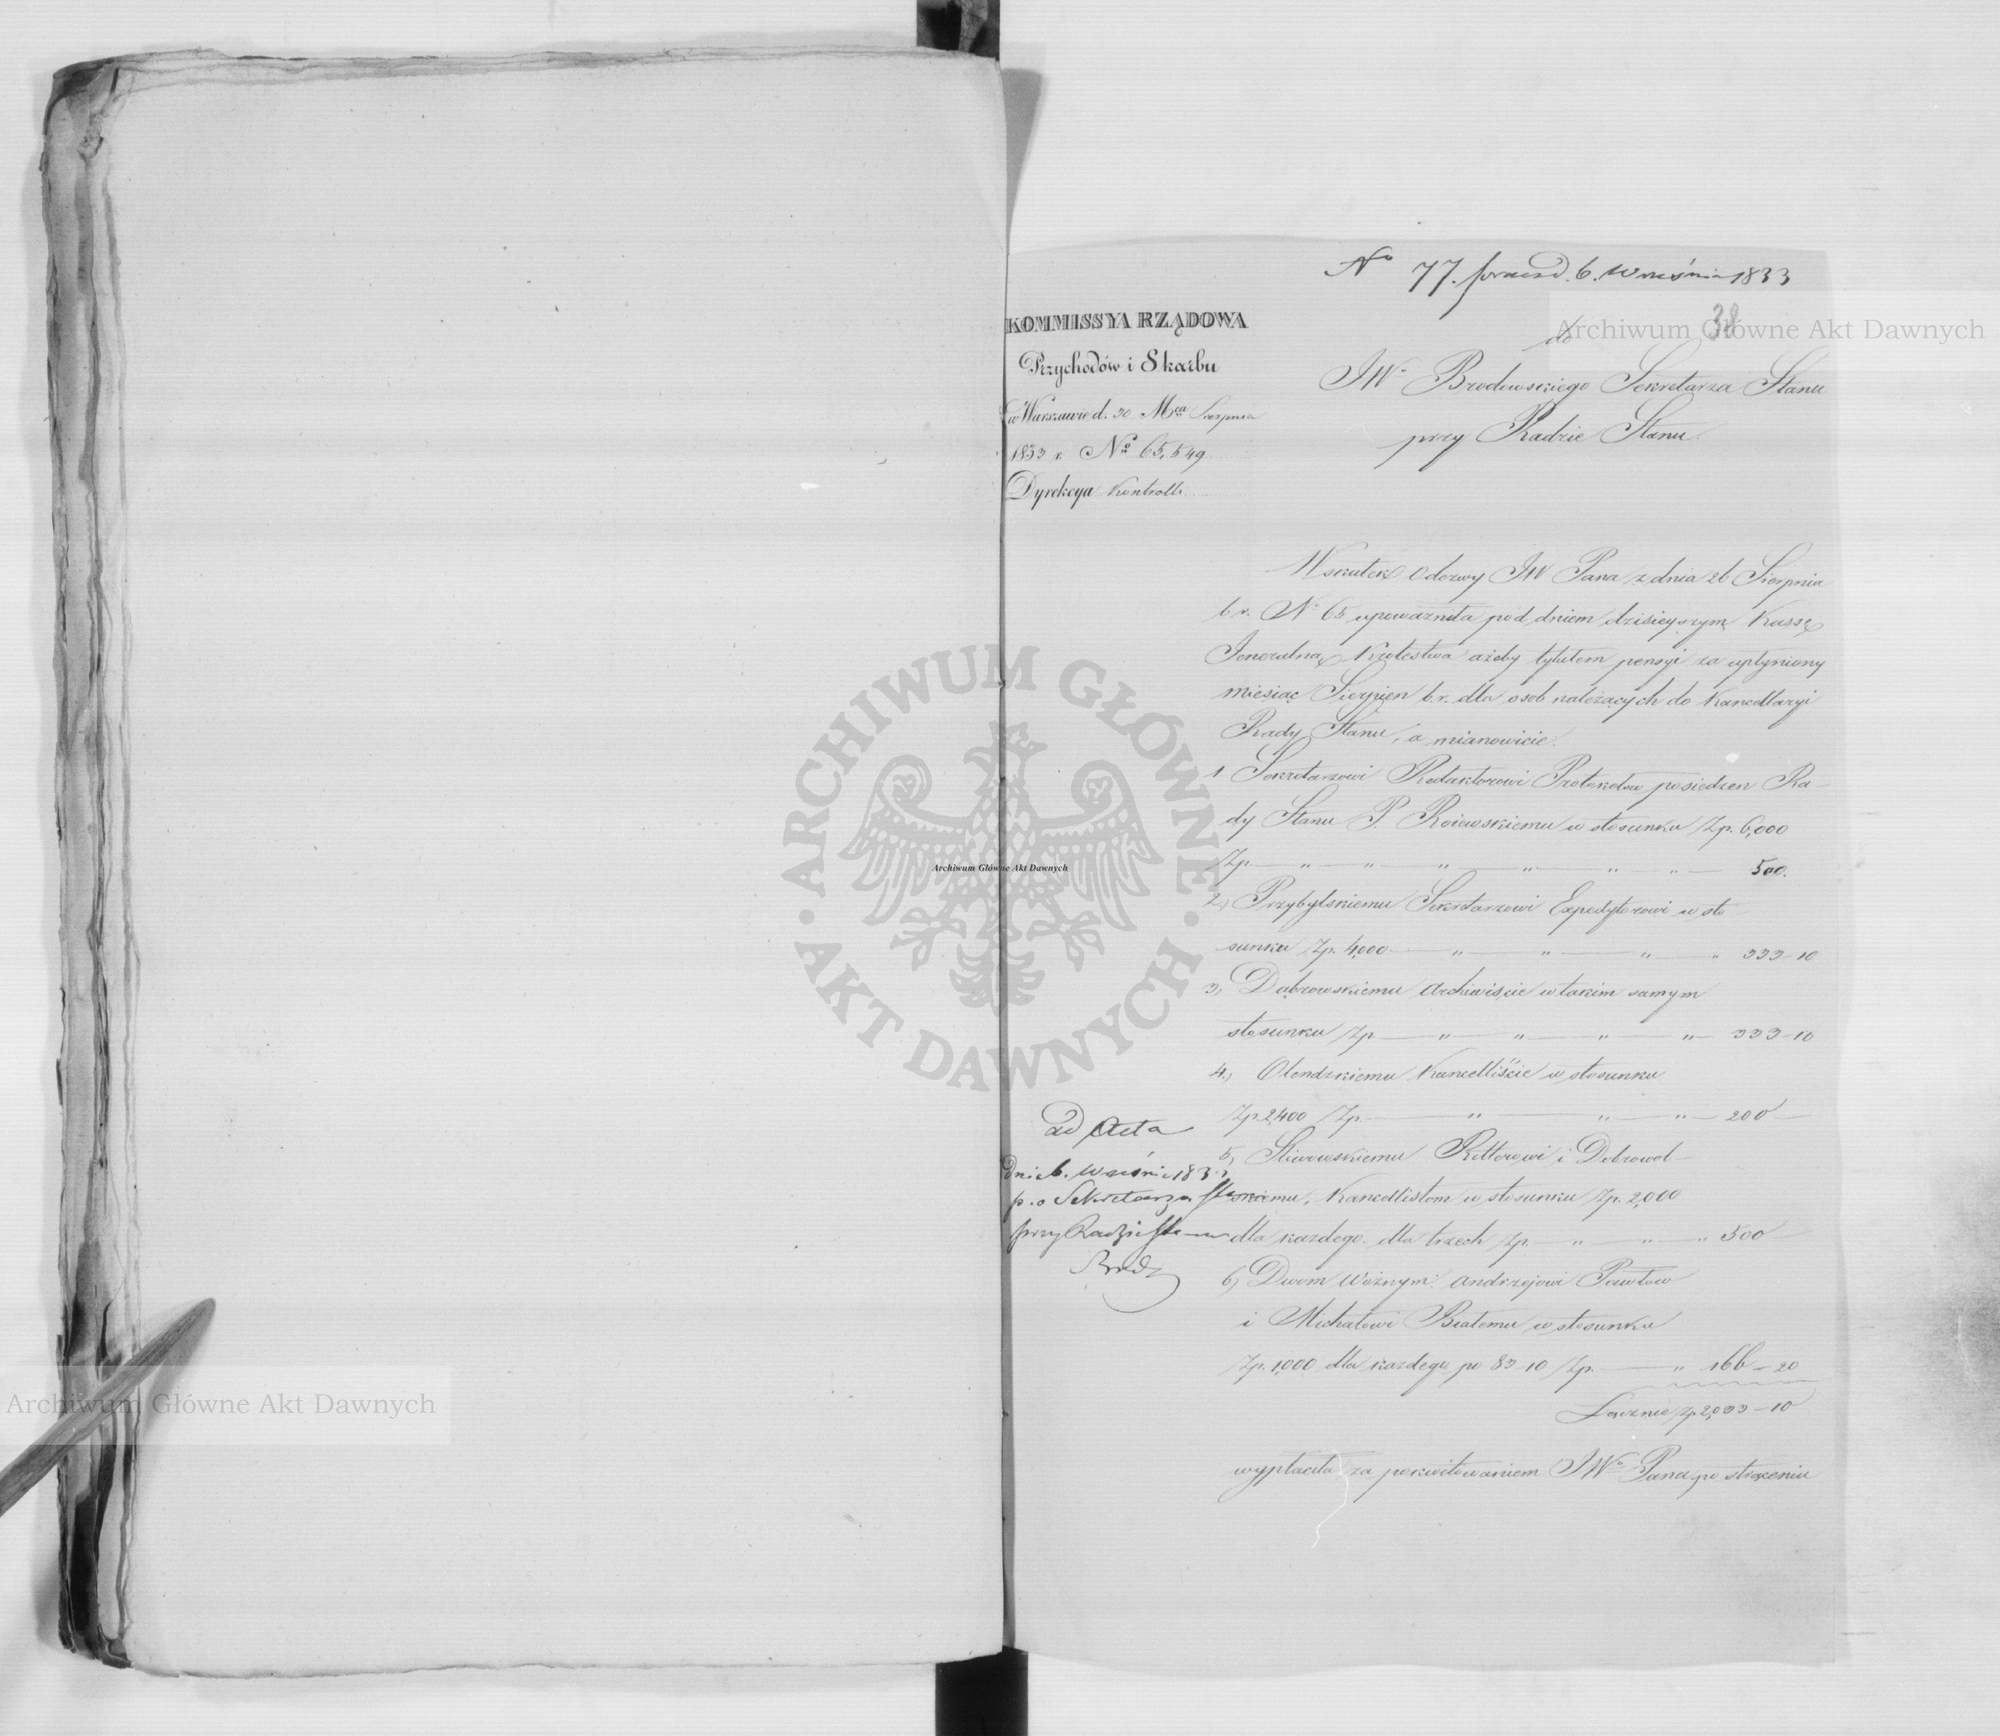 No 77. praes d. 6. Września 1833
38
KOMMISSYA RZĄDOWA
Przychodów i Skarbu
w Warszawie d. 30 Mca Sierpnia
1833 r. No 65,549
Dyrekcya Kontroli
do
JW. Brodowskiego Sekretarza Stanu
przy Radzie Stanu.
Wskutek Odezwy JW Pana z dnia 26 Sierpnia
b.r. No 65 upoważniła pod dniem dzisieyszym Kassę
Jeneralną Królestwa ażeby tytułem pensyi za upłyniony
miesiąc Sierpień b.r. dla osob należących do Kancellaryi
Rady Stanu, a mianowicie.
1 Sekretarzowi Redaktorowi Protokołów posiedzen Ra-
dy Stanu P. w stosunku Zp. 6,000
Zp. — " — " — " — " — " — " — 500.
2, Przybylskiemu Sekretarzowi Expedytorowi w sto-
sunku Zp. 4,000 — " — " — " — " 333-10
3, Dąbrowskiemu Archiwiście w takim samym
stosunku Zp. — " — " — " — " — 333-10
4., Olendzkiemu Kancelliście w stosunku
Zp 2,400 Zp. — " — " — " — 200 —
5, Rittorowi i Dobrowol-
skiemu, Kancellistom w stosunku Zp. 2,000
dla każdego. dla trzech Zp. — " — " — " 500 —
6, Dwom Woźnym: Andrzejowi Pawłow
i Michałowi Białemu w stosunku
Zp. 1,000 dla każdego po 83-10 Zp. — " 166-20
Łącznie Zp 2,033-10
wypłaciła za pokwitowaniem JW. Pana po strąceniu
ad Acta
dnia 6. Wrześnie 1833
p.o Sekretarza Stanu
przy Radzie Stanu
Brod
Archiwum Główne Akt Dawnych
Archiwum Główne Akt Dawnych
Archiwum Główne Akt Dawnych
ARCHIWUM GŁÓWNE • AKT DAWNYCH • A